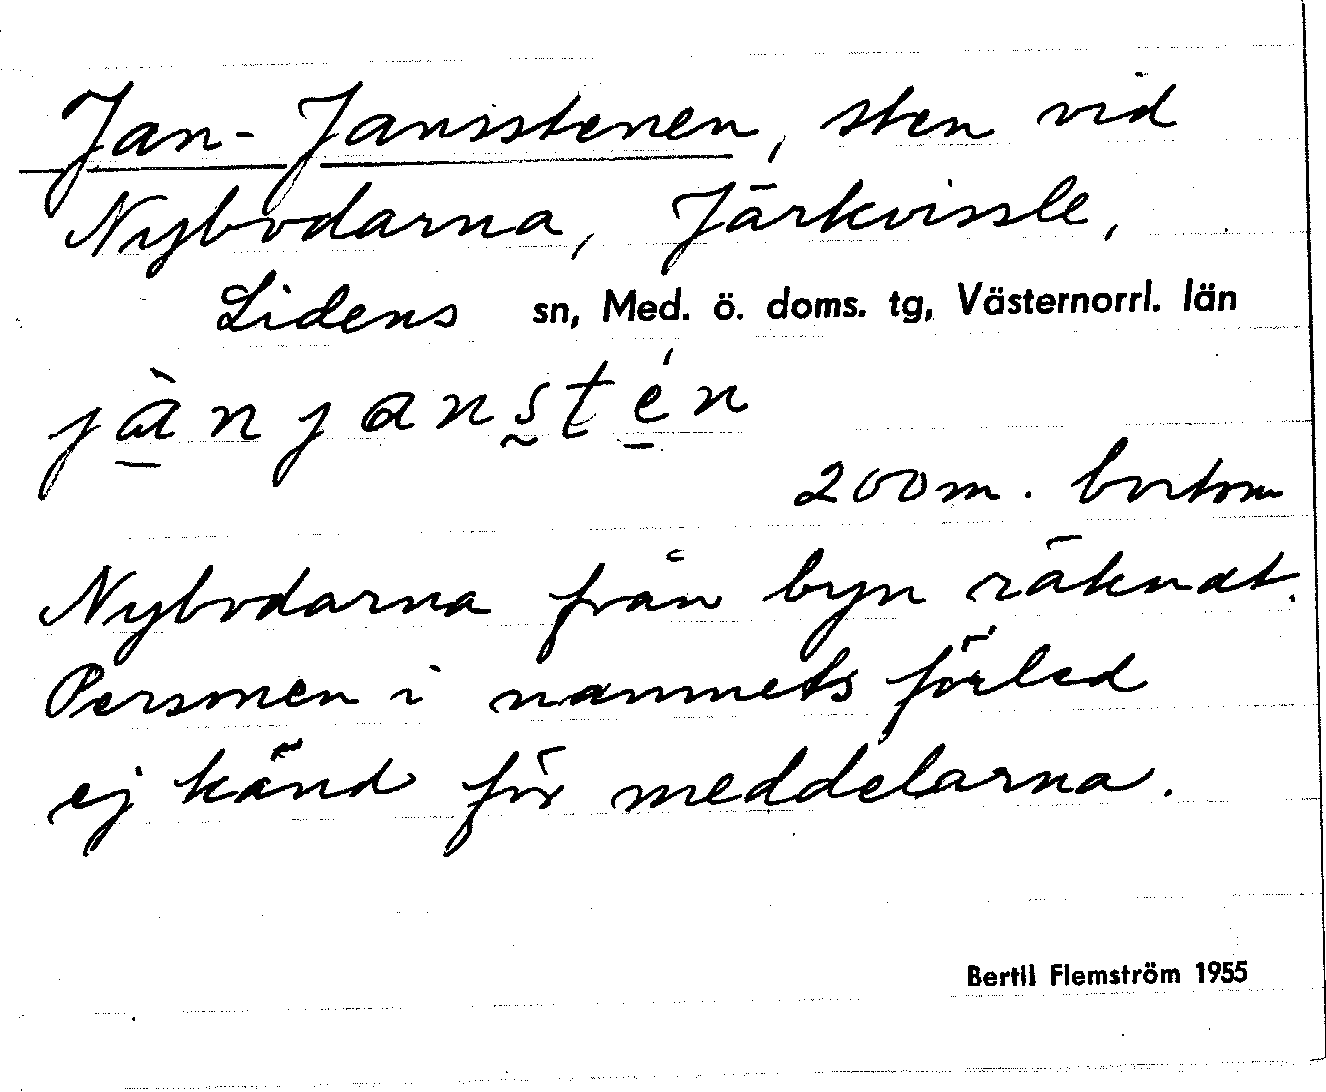 Jan-Jansstenen, sten vid
Nybodarna, Järkvissle,
Lidens sn, Med. ö. doms. tg, Västernorrl. län
jànjansten
200 m. bortom
Nybodarna från byn räknat.
Personen i namnets förled
ej känd för meddelarna.
Bertil Flemström 1955